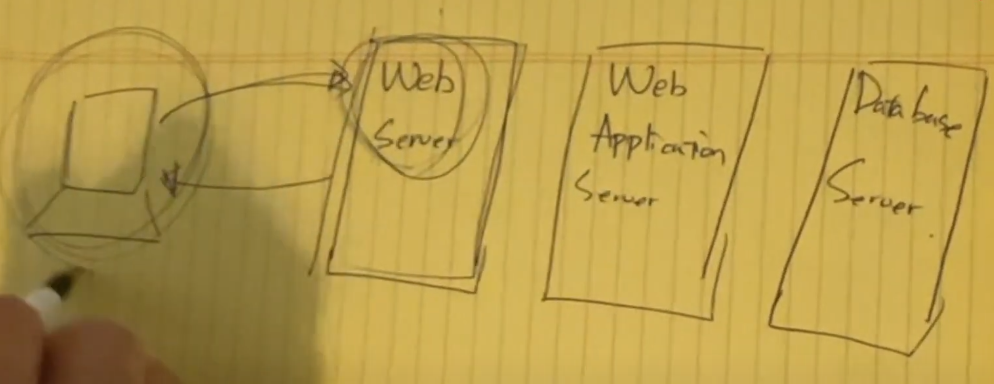 Web
Server
Web
Application
Server
Database
Server